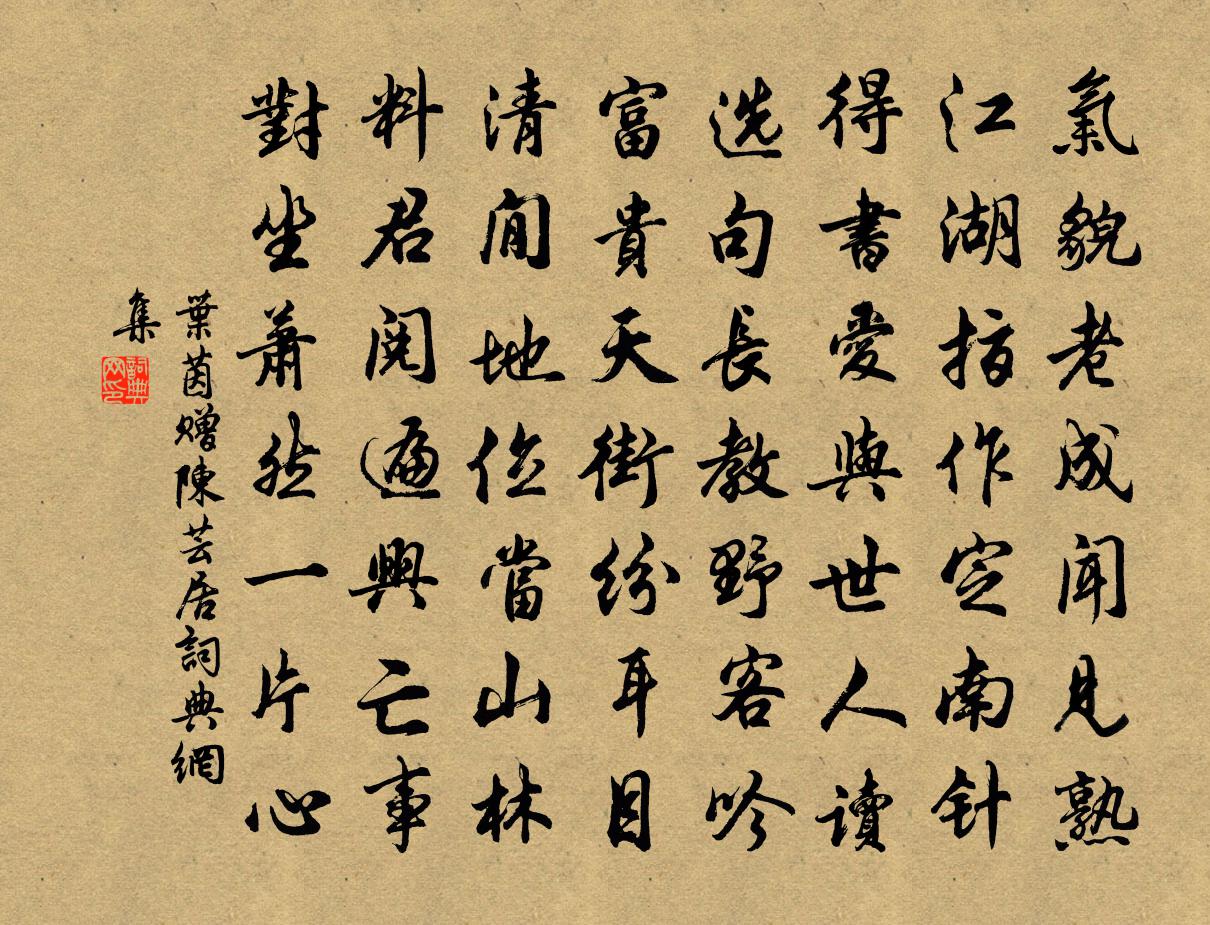 氣貌老成聞見熟
江湖指作定南针
得書愛與世人讀
选句長教野客吟
富貴天街紛耳目
清閒地位當山林
料君閱遍興亡事
對坐蕭然一片心
葉茵赠陳芸居詞典網
集
詞典网印